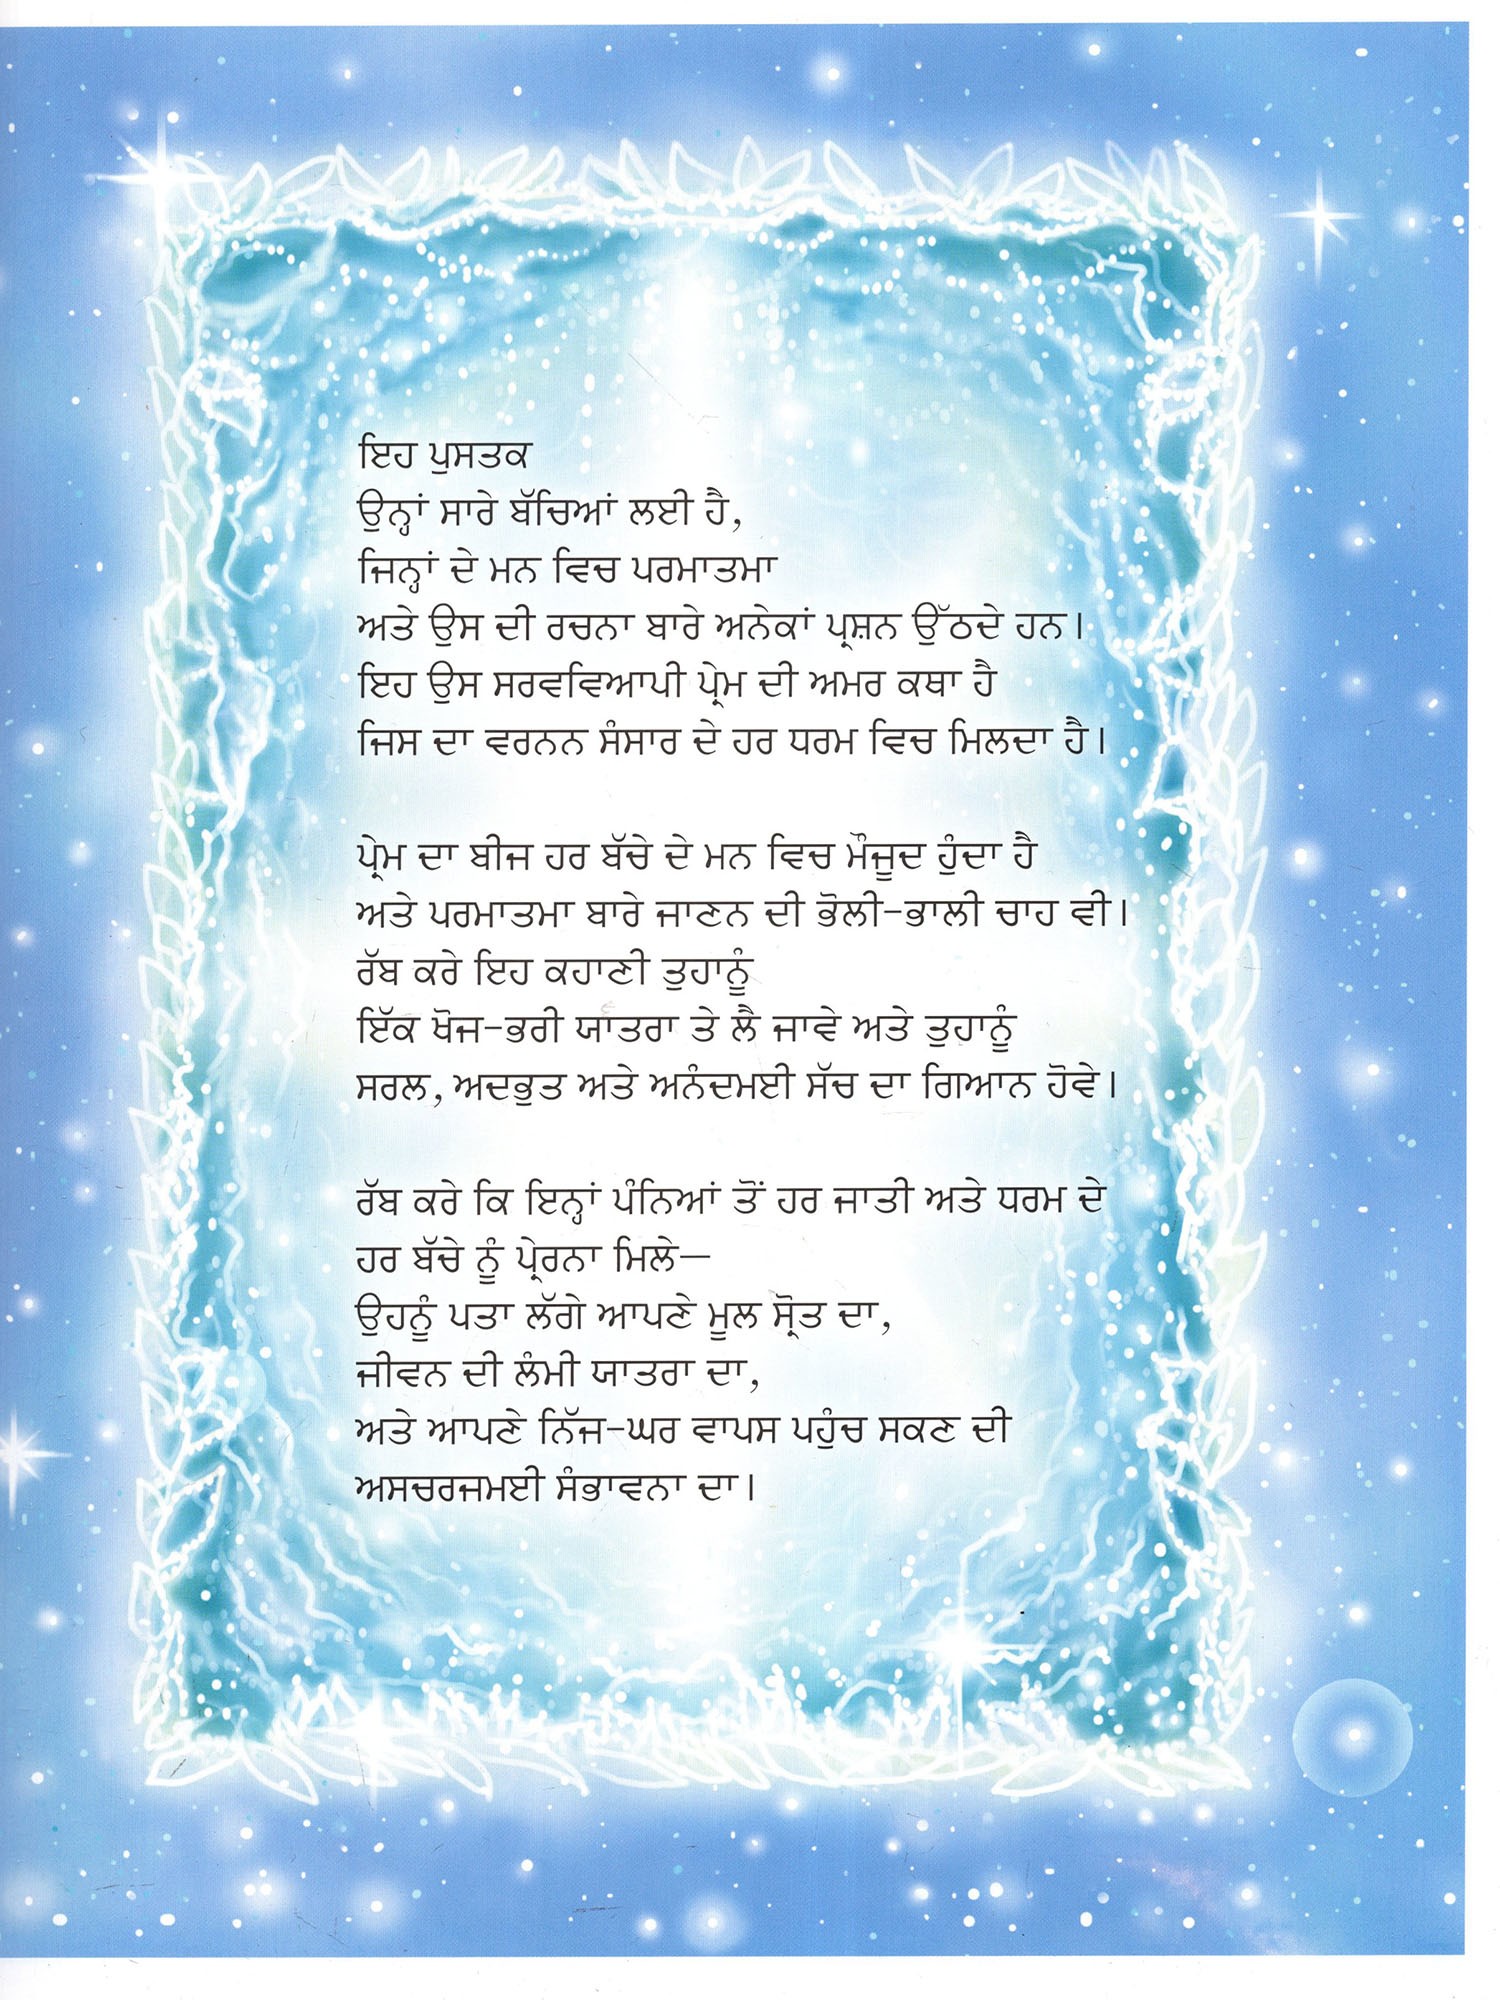 ਇਹ ਪੁਸਤਕ
ਉਨ੍ਹਾਂ ਸਾਰੇ ਬੱਚਿਆਂ ਲਈ ਹੈ,
ਜਿਨ੍ਹਾਂ ਦੇ ਮਨ ਵਿਚ ਪਰਮਾਤਮਾ
ਅਤੇ ਉਸ ਦੀ ਰਚਨਾ ਬਾਰੇ ਅਨੇਕਾਂ ਪ੍ਰਸ਼ਨ ਉੱਠਦੇ ਹਨ।
ਇਹ ਉਸ ਸਰਵਵਿਆਪੀ ਪ੍ਰੇਮ ਦੀ ਅਮਰ ਕਥਾ ਹੈ
ਜਿਸ ਦਾ ਵਰਨਨ ਸੰਸਾਰ ਦੇ ਹਰ ਧਰਮ ਵਿਚ ਮਿਲਦਾ ਹੈ।
ਪ੍ਰੇਮ ਦਾ ਬੀਜ ਹਰ ਬੱਚੇ ਦੇ ਮਨ ਵਿਚ ਮੌਜੂਦ ਹੁੰਦਾ ਹੈ
ਅਤੇ ਪਰਮਾਤਮਾ ਬਾਰੇ ਜਾਣਨ ਦੀ ਭੋਲੀ-ਭਾਲੀ ਚਾਹ ਵੀ।
ਰੱਬ ਕਰੇ ਇਹ ਕਹਾਣੀ ਤੁਹਾਨੂੰ
ਇੱਕ ਖੋਜ-ਭਰੀ ਯਾਤਰਾ ਤੇ ਲੈ ਜਾਵੇ ਅਤੇ ਤੁਹਾਨੂੰ
ਸਰਲ, ਅਦਭੁਤ ਅਤੇ ਅਨੰਦਮਈ ਸੱਚ ਦਾ ਗਿਆਨ ਹੋਵੇ।
ਰੱਬ ਕਰੇ ਕਿ ਇਨ੍ਹਾਂ ਪੰਨਿਆਂ ਤੋਂ ਹਰ ਜਾਤੀ ਅਤੇ ਧਰਮ ਦੇ
ਹਰ ਬੱਚੇ ਨੂੰ ਪ੍ਰੇਰਨਾ ਮਿਲੇ—
ਉਹਨੂੰ ਪਤਾ ਲੱਗੇ ਆਪਣੇ ਮੂਲ ਸ੍ਰੋਤ ਦਾ,
ਜੀਵਨ ਦੀ ਲੰਮੀ ਯਾਤਰਾ ਦਾ,
ਅਤੇ ਆਪਣੇ ਨਿੱਜ-ਘਰ ਵਾਪਸ ਪਹੁੰਚ ਸਕਣ ਦੀ
ਅਸਚਰਜਮਈ ਸੰਭਾਵਨਾ ਦਾ।